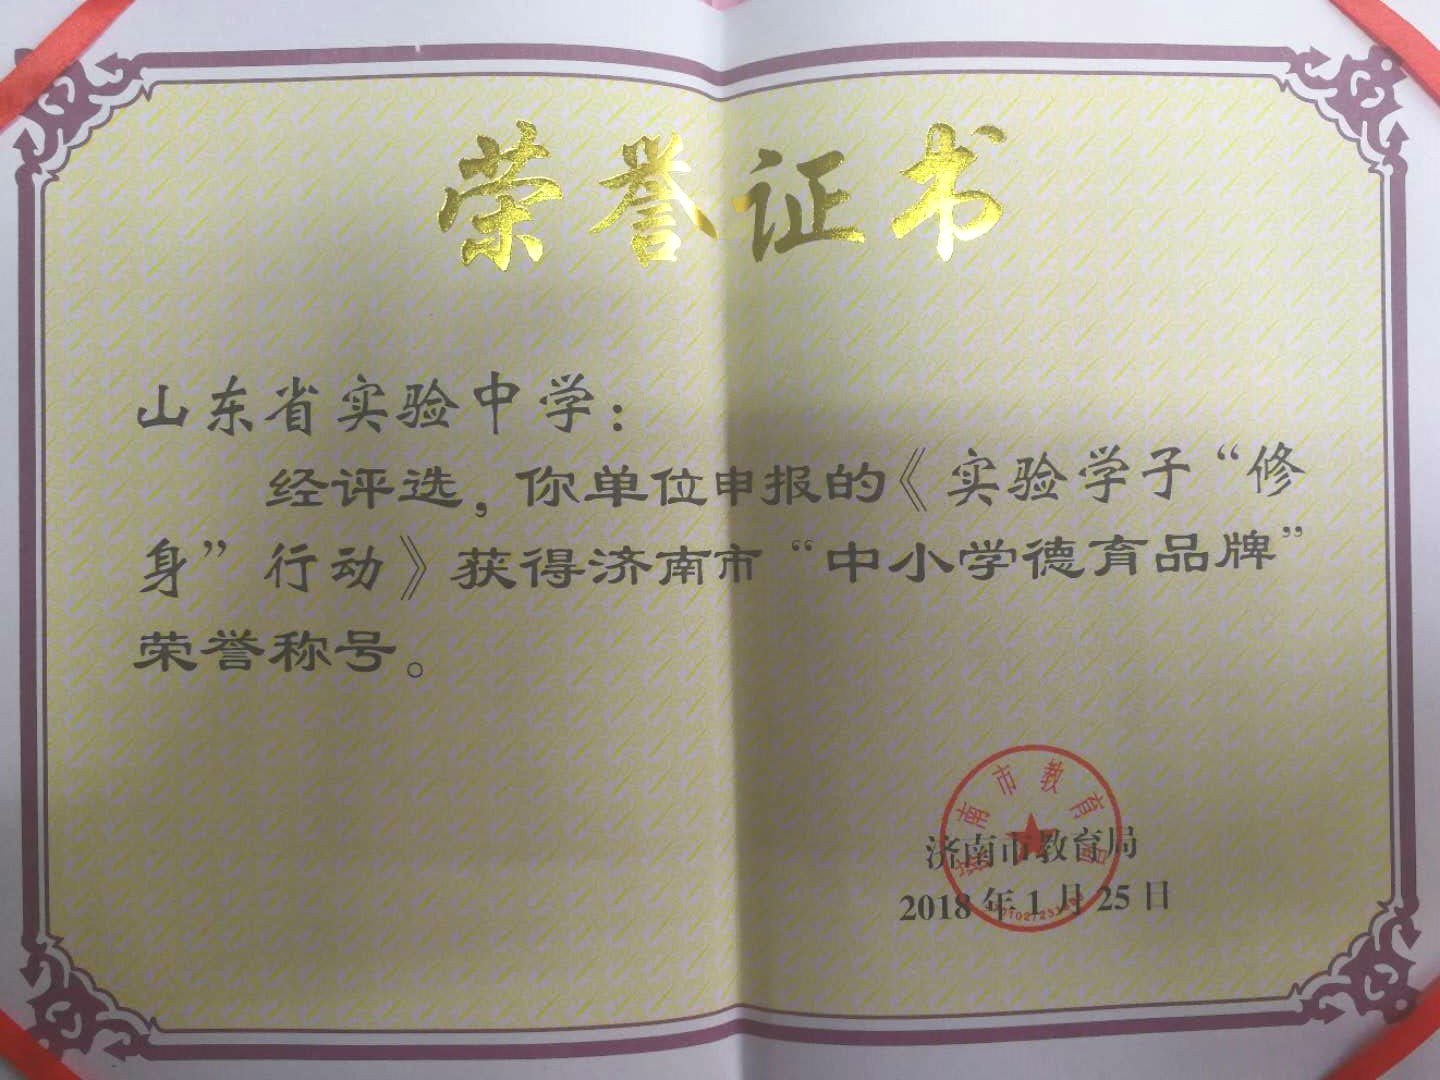 荣誉证书
山东省实验中学：
经评选，你单位申报的《实验学子“修
身”行动》获得济南市“中小学德育品牌”
荣誉称号。
济南市教育局
济南市教育局
2018年1月25日